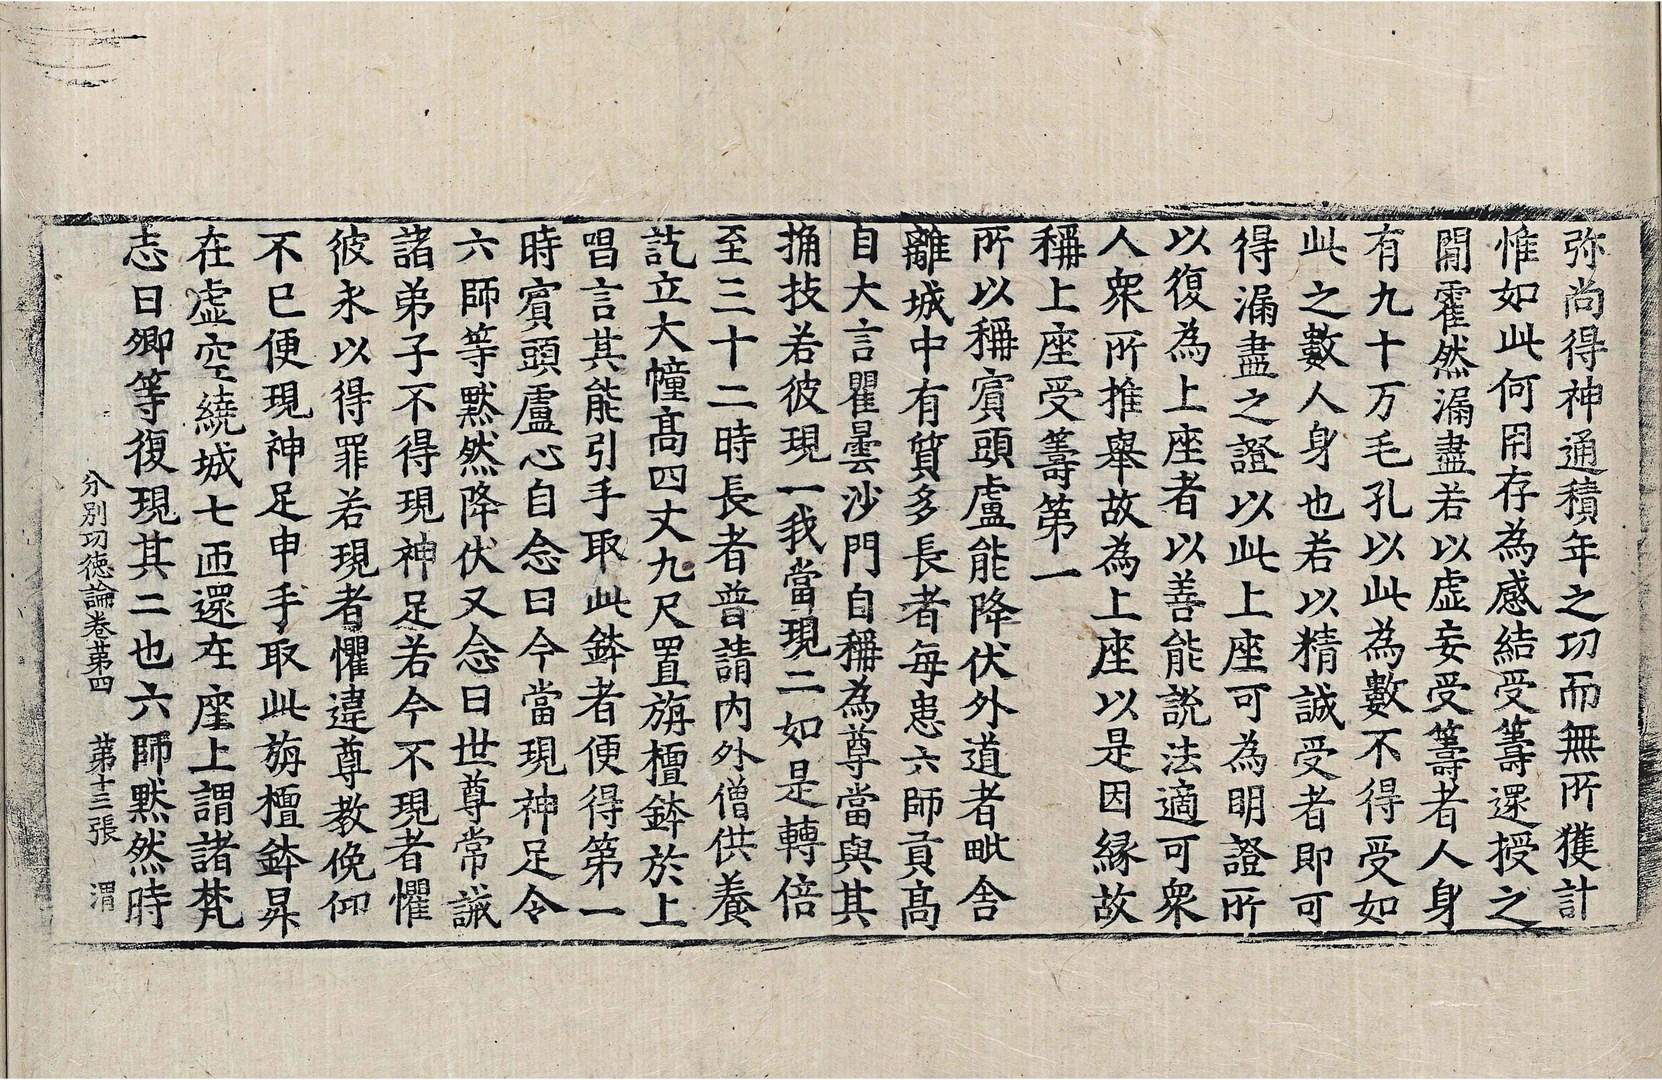 弥尚得神通積年之功而無所獲計
惟如此何用存為感結受籌還授之
閒霍然漏盡若以虛妄受籌者人身
有九十万毛孔以此為數不得受如
此之數人身也若以精誠受者即可
得漏盡之證以此上座可為明證所
以復為上座者以善能說法適可衆
人衆所推舉故為上座以是因緣故
稱上座受籌第一
所以稱賓頭盧能降伏外道者毗舍
離城中有質多長者每患六師貢高
自大言瞿曇沙門自稱為尊當與其
捅技若彼現一我當現二如是轉倍
至三十二時長者普請內外僧供養
訖立大幢高四丈九尺置旃檀鉢於上
唱言其能引手取此鉢者便得第一
時賓頭盧心自念曰今當現神足令
六師等默然降伏又念曰世尊常誡
諸弟子不得現神足若今不現者懼
彼永以得罪若現者懼違尊教俛仰
不已便現神足申手取此旃檀鉢昇
在虛空繞城七匝還在座上謂諸梵
志曰卿等復現其二也六師默然時
分別功徳論卷苐四　苐十三張　渭